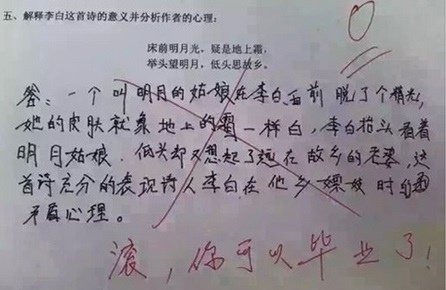 五、解释李白这首诗的意义并分析作者的心理:
床前明月光，疑是地上霜，
举头望明月，低头思故乡。
0
答：一个叫明月的姑娘在李白面前脱了个精光，
她的皮肤就象地上的霜一样白，李白抬头看着
明月姑娘．低头却又想起了远在故乡的老婆，这
首诗充分的表现诗人李白在他乡嫖妓时的
矛盾心理。
滚，你可以毕业了！